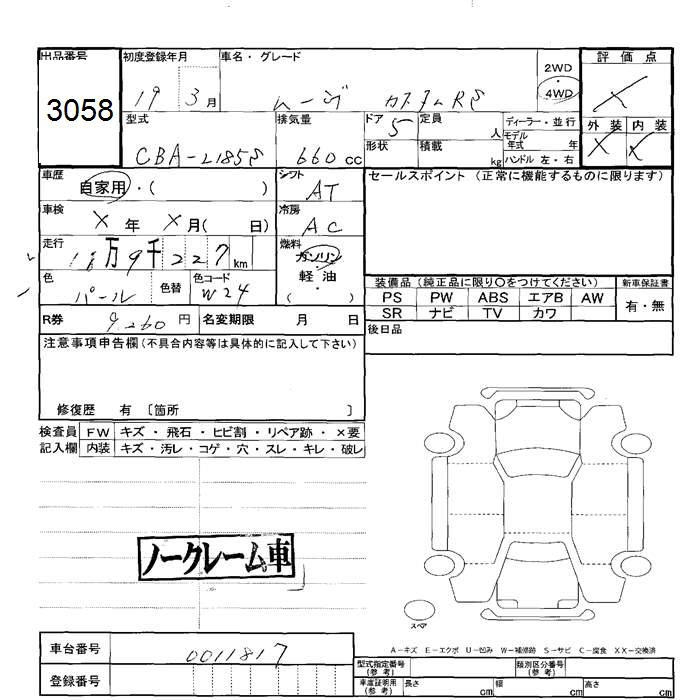 出品番号 初度登録年月 車名・グレード 2WD 評価点
3058 19 3月 ムーヴ カスタムRS 4WD X
型式 排気量 ドア 定員 ディーラー・並行 外装 内装
CBA-L185S 660cc 5 人 モデル年式 年 X X
形状 積載 kg ハンドル 左・右
車歴 シフト セールスポイント (正常に機能するものに限ります)
自家用・( ) AT
車検 冷房
X 年 X 月( 日) AC
走行 燃料
16万9千227km ガソリン
色 色替 色コード 軽油 装備品 (純正品に限り〇をつけてください) 新車保証書
パール W24 ( ) PS PW ABS エアB AW 有・無
SR ナビ TV カワ
R券 9260円 名変期限 月 日 後日品
注意事項申告欄(不具合内容等は具体的に記入して下さい)
修復歴 有 〔箇所 〕
検査員 FW キズ・飛石・ヒビ割・リペア跡・×要
記入欄 内装 キズ・汚レ・コゲ・穴・スレ・キレ・破レ
ノークレーム車
スペア
車台番号 0011817
A－キズ E－エクボ U－凹み W－補修跡 S－サビ C－腐食 XX－交換済
型式指定番号 類別区分番号
登録番号 車庫証明用(参考) 長さ cm 幅 cm 高さ cm
(参考)